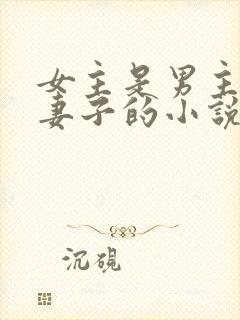 女主是男主
妻子的小說
沉硯